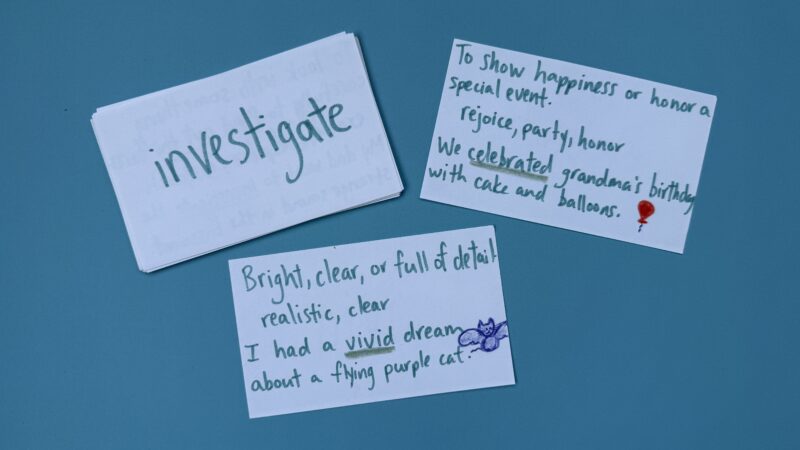 investigate
To show happiness or honor a
special event.
rejoice, party, honor
We celebrated grandma's birthday
with cake and balloons.
Bright, clear, or full of detail
realistic, clear
I had a vivid dream
about a flying purple cat.